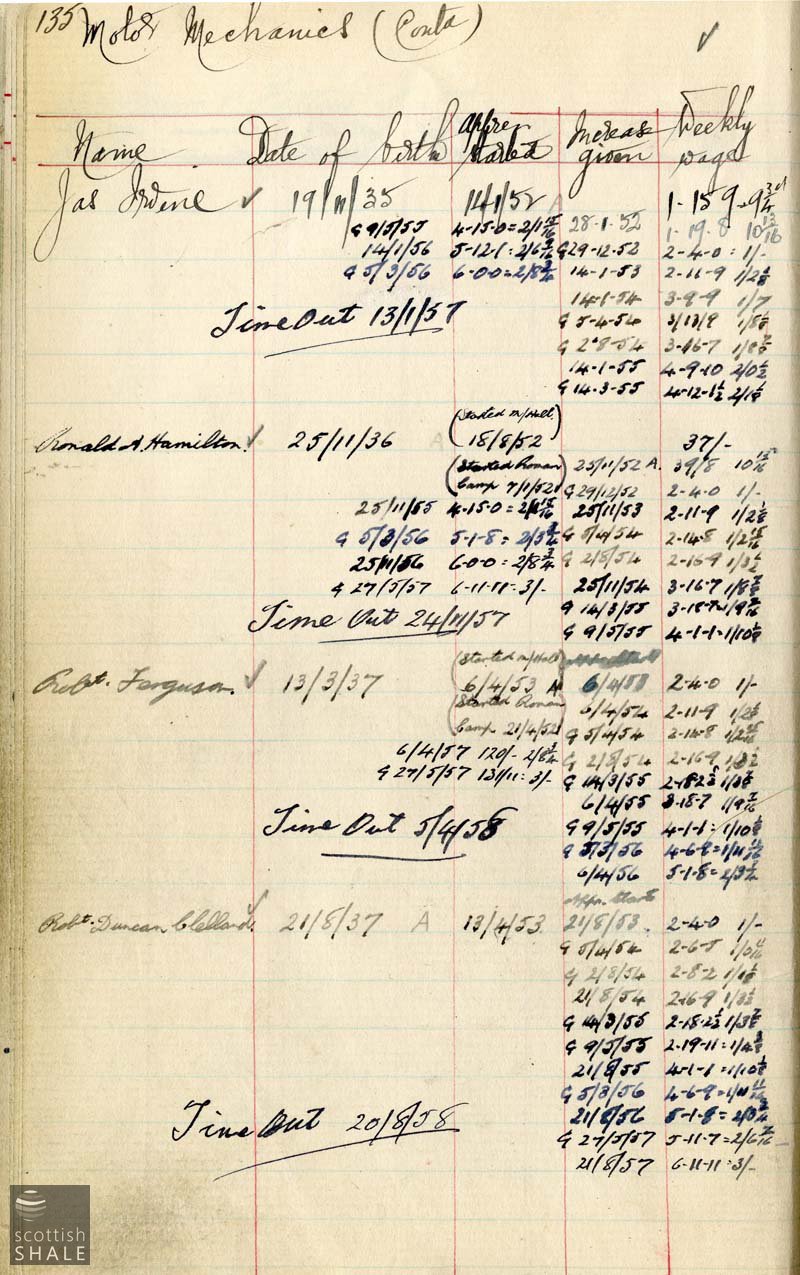 135 Motor Mechanics (Contd)
Name Date of birth Appren started Increase given Weekly wage
Jas Irvine 19/11/35 14/1/52 A 1-15 9 = 9 3/4 d
G 9/5/55 4-15-0 = 2/1 15/16 28-1-52 1-19-8 10 13/16
14/1/56 5-12-1 = 2/6 G 29-12-52 2-4-0 = 1/-
G 5/3/56 6-0-0 = 2/8 3/4 14-1-53 2-11-9 1/2 1/8
14-1-54 3-9-9 1/7
Time Out 13/1/57 G 5-4-54 3/13/9 1/8
G 2-8-54 3-16-7 1/8 7/8
14-1-55 4-9-10 2/0 1/2
G 14-3-55 4-12-1 1/2 2/1 1/8
(Started m/Hall)
Ronald A. Hamilton. 25/11/36 A 18/8/52 37/-
(Started Roman 25/11/52 A. 39/8 10 13/16
Camp 7/1/52) G 29/12/52 2-4-0 1/-
25/11/55 4-15-0 = 2/1 15/16 25/11/53 2-11-9 1/2 1/8
G 5/3/56 5-1-8 = 2/3 3/4 G 5/4/54 2-14-8 1/2 15/16
25/11/56 6-0-0 = 2/8 3/4 G 2/8/54 2-16-9 1/3 1/2
G 27/5/57 6-11-11 = 3/- 25/11/54 3-16-7 1/8 7/8
Time Out 24/11/57 G 14/3/55 3-18-7 = 1/9 7/16
G 9/5/55 4-1-1 = 1/10 1/8
(Started m/Hall)
Robt. Ferguson. 13/3/37 6/4/53 A 6/4/53 2-4-0 1/-
(Started Roman 6/4/54 2-11-9 1/2 1/8
Camp 21/4/52) G 5/4/54 2-14-8 1/2 15/16
6/4/57 120/- 2/8 3/4 G 2/8/54 2-16-9 1/3 1/2
G 27/5/57 131/11 = 3/- G 14/3/55 2-18-2 1/2 1/3 7/8
6/4/55 3-18-7 1/9 7/16
Time Out 5/4/58 G 9/5/55 4-1-1 = 1/10 1/8
G 5/3/56 4-6-9 = 1/11 11/16
6/4/56 5-1-8 = 2/3 3/4
Appr. Start
Robt. Duncan Clelland. 21/8/37 A 13/4/53 21/8/53. 2-4-0 1/-
G 5/4/54 2-6-5 1/0 11/16
G 2/8/54 2-8-2 1/1 1/8
21/8/54 2-16-9 1/3 1/2
G 14/3/55 2-18-2 1/2 1/3 7/8
G 9/5/55 2-19-11 = 1/4 3/8
21/8/55 4-1-1 = 1/10 1/8
G 5/3/56 4-6-9 = 1/11 11/16
Time Out 20/8/58 21/8/56 5-1-8 = 2/3 3/4
G 27/5/57 5-11-7 = 2/6 7/16
21/8/57 6-11-11 = 3/-
scottish
SHALE